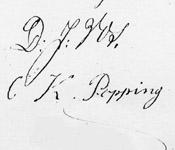 D. J. W.
C K. Popping